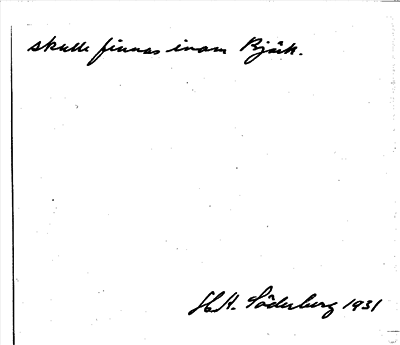 skulle finnas inom Björk.
H.H. Söderberg 1931